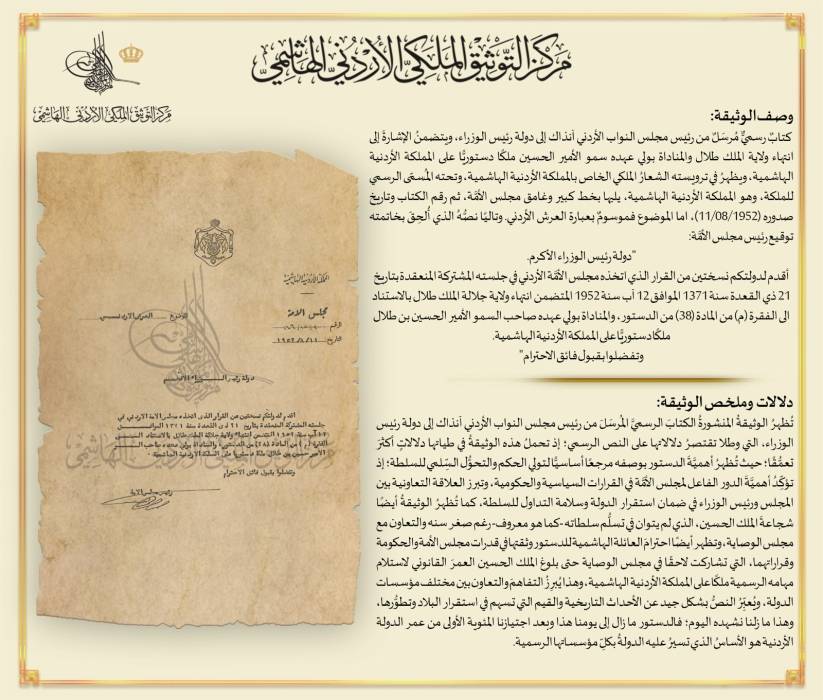 مركز التوثيق الملكي الأردني الهاشمي
مركز التوثيق الملكي الأردني الهاشمي
وصف الوثيقة:
كتابٌ رسميٌّ مُرسَلٌ من رئيس مجلس النواب الأردني آنذاك إلى دولة رئيس الوزراء، ويتضمنُ الإشارةَ إلى
انتهاء ولاية الملك طلال والمناداة بولي عهده سمو الأمير الحسين ملكًا دستوريًّا على المملكة الأردنية
الهاشمية، ويظهرُ في ترويسته الشعارُ الملكي الخاص بالمملكة الأردنية الهاشمية، وتحته المُسمّى الرسمي
للملكة، وهو المملكة الأردنية الهاشمية، يليها بخط كبير وغامق مجلس الأمَّة، ثم رقم الكتاب وتاريخ
صدوره (11/08/1952)، اما الموضوع فموسومٌ بعبارة العرش الأردني. وتاليًا نصُّهُ الذي أُلحِقَ بخاتمته
توقيع رئيس مجلس الأمَّة:
"دولة رئيس الوزراء الأكرم.
أقدم لدولتكم نسختين من القرار الذي اتخذه مجلس الأمَّة الأردني في جلسته المشتركة المنعقدة بتاريخ
21 ذي القعدة سنة 1371 الموافق 12 آب سنة 1952 المتضمن انتهاء ولاية جلالة الملك طلال بالاستناد
الى الفقرة (م) من المادة (38) من الدستور، والمناداة بولي عهده صاحب السمو الأمير الحسين بن طلال
ملكًا دستوريًّا على المملكة الأردنية الهاشمية.
وتفضلوا بقبول فائق الاحترام"
دلالات وملخص الوثيقة:
تُظهِرُ الوثيقةُ المنشورةُ الكتابَ الرسميَّ المُرسَلَ من رئيس مجلس النواب الأردني آنذاك إلى دولة رئيس
الوزراء، التي وطلا تقتصرُ دلالاتها على النص الرسمي؛ إذ تحملُ هذه الوثيقةُ في طياتها دلالاتٍ أكثرَ
تعمُّقًا؛ حيث تُظهرُ أهميَّةَ الدستور بوصفه مرجعًا أساسيًّا لتولي الحكم والتحوُّل السِّلمي للسلطة؛ إذ
تؤكِّدُ أهميَّةَ الدور الفاعل لمجلس الأمَّة في القرارات السياسية والحكومية، وتبرز العلاقة التعاونية بين
المجلس ورئيس الوزراء في ضمان استقرار الدولة وسلامة التداول للسلطة، كما تُظهرُ الوثيقةُ أيضًا
شجاعةَ الملك الحسين، الذي لم يتوان في تسلُّم سلطاته -كما هو معروف- رغم صغر سنه والتعاون مع
مجلس الوصاية، وتظهر أيضًا احترامَ العائلة الهاشمية للدستور وثقتها في قدرات مجلس الأمة والحكومة
وقراراتهما، التي تشاركت لاحقًا في مجلس الوصاية حتى بلوغ الملك الحسين العمرَ القانوني لاستلام
مهامه الرسمية ملكًا على المملكة الأردنية الهاشمية، وهذا يُبرِزُ التفاهمَ والتعاون بين مختلف مؤسسات
الدولة، ويُعبِّرُ النصُّ بشكل جيد عن الأحداث التاريخية والقيم التي تسهم في استقرار البلاد وتطوُّرها،
وهذا ما زلنا نشهده اليوم؛ فالدستور ما زال إلى يومنا هذا وبعد اجتيازنا المئوية الأولى من عمر الدولة
الأردنية هو الأساسُ الذي تسيرُ عليه الدولةُ بكلِّ مؤسساتها الرسمية.
المملكة الأردنية الهاشمية
مجلس الامة
الرقم
التاريخ ١٩٥٢/٨/١١
الموضوع العرش الاردني
دولة رئيس الوزراء الأكرم
اقدم لدولتكم نسختين من القرار الذي اتخذه مجلس الامة الاردني في
جلسته المشتركة المنعقدة بتاريخ ٢١ ذي القعدة سنة ١٣٧١ الموافق
١٢ آب سنة ١٩٥٢ المتضمن انتهاء ولاية جلالة الملك طلال بالاستناد الى
الفقرة (م) من المادة (٣٨) من الدستور، والمناداة بولي عهده صاحب السمو
الامير حسين بن طلال ملكا دستوريا على المملكة الاردنية الهاشمية.
وتفضلوا بقبول فائق الاحترام
رئيس مجلس الامة
مركز التوثيق الملكي الأردني الهاشمي